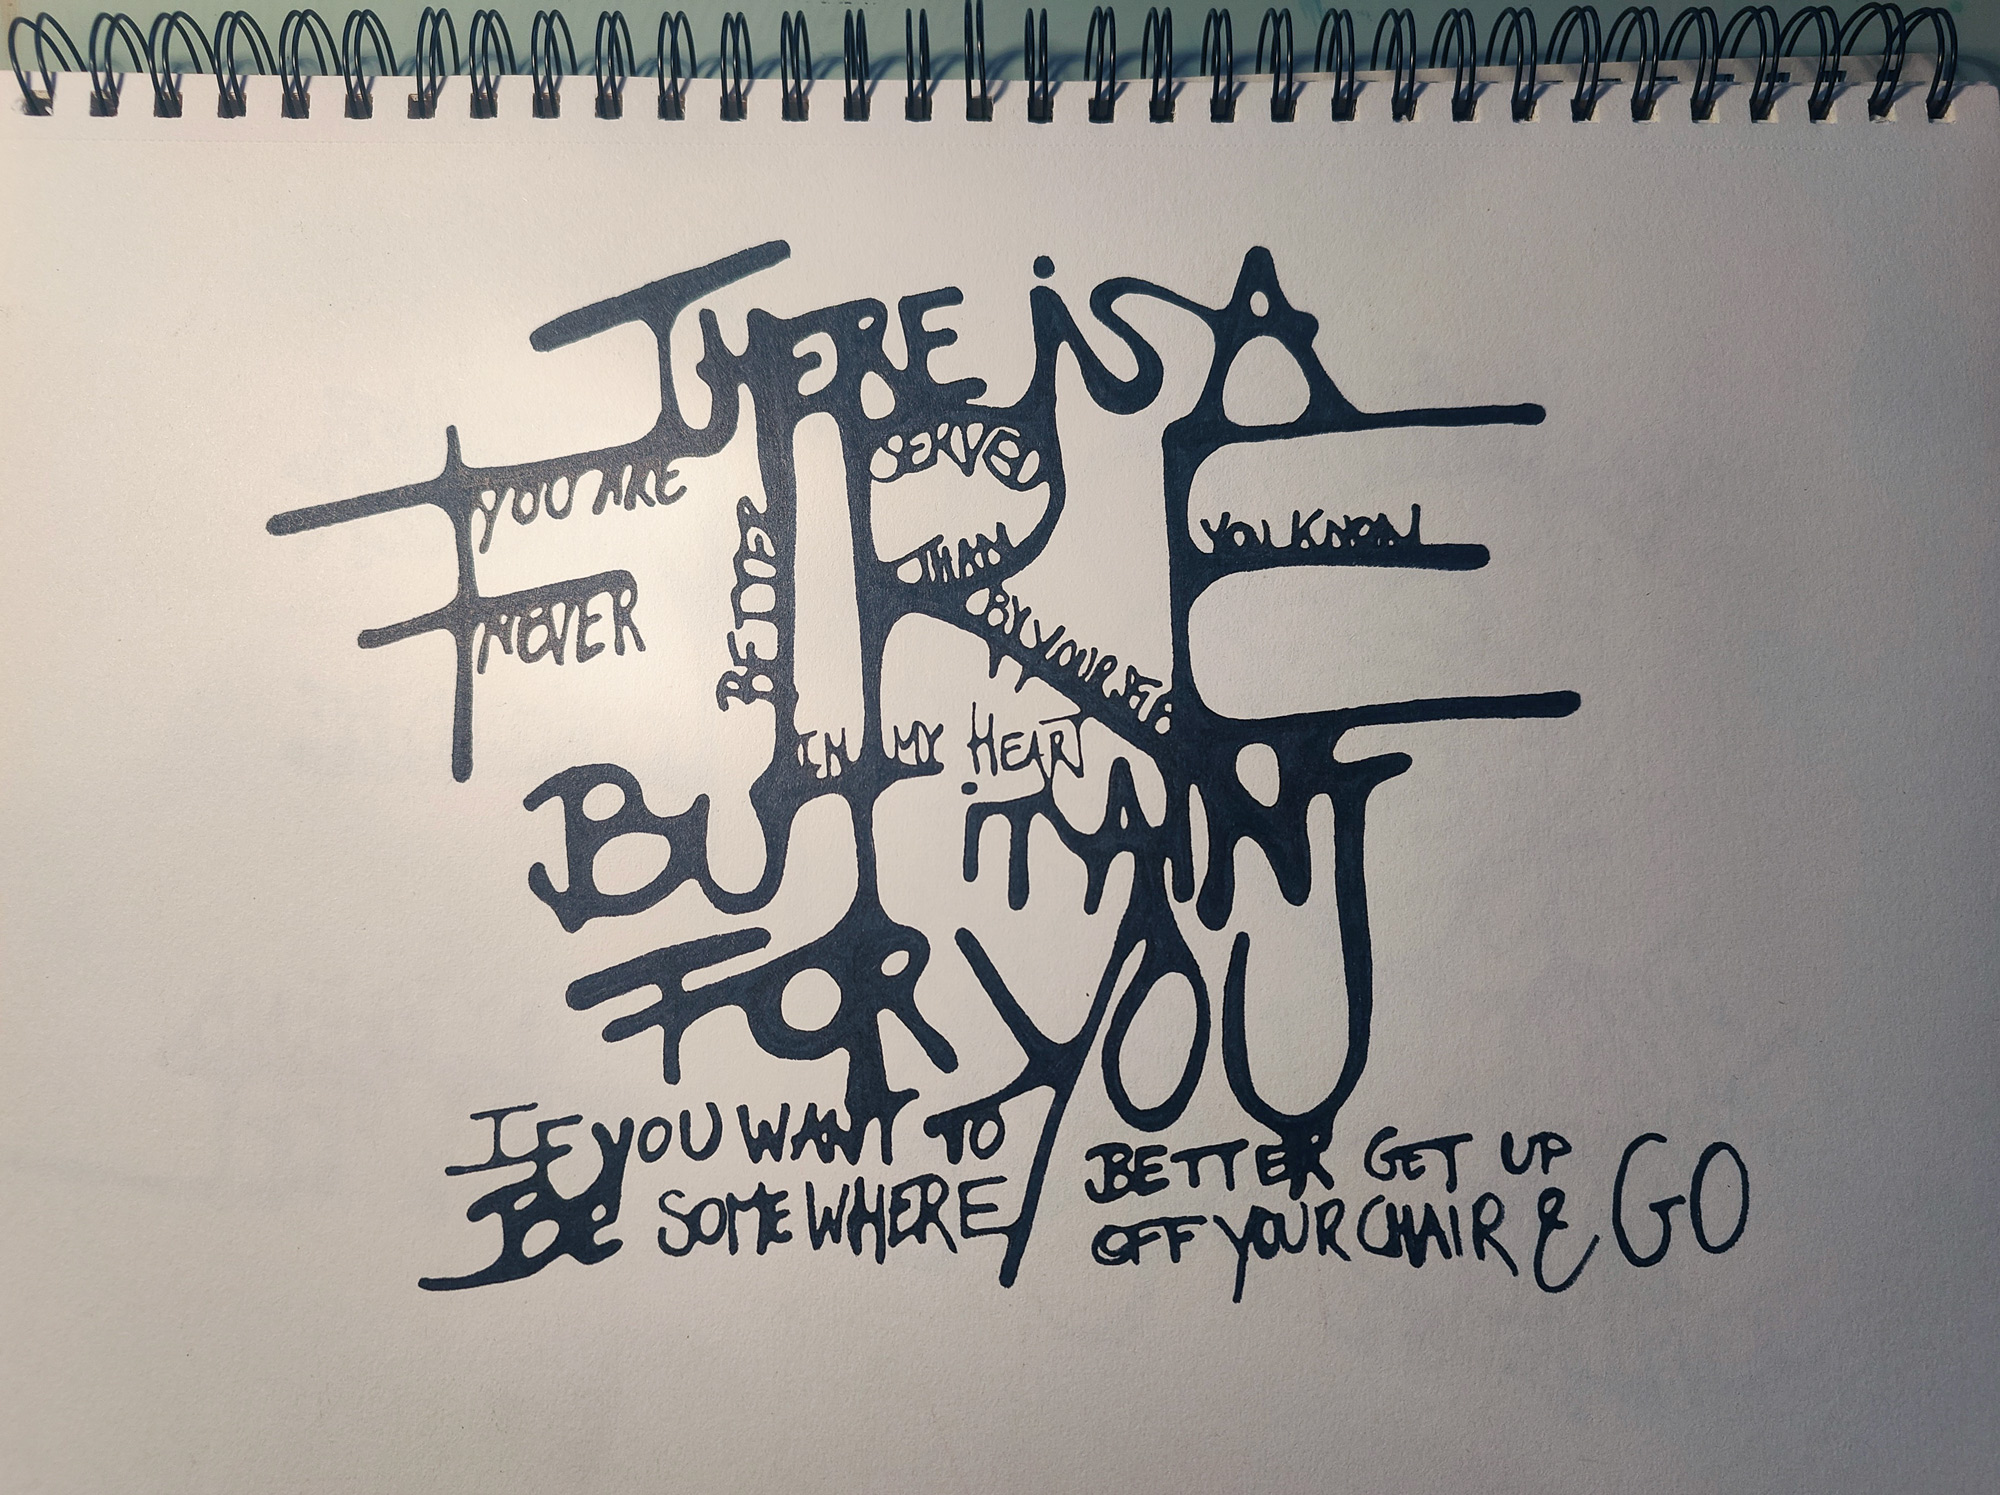 THERE iS A
FIRE
YOU ARE
NEVER
BETTER
SERVED
THAN
BY YOURSELF
YOU KNOW
IN MY HEART
BUT iT AINT
FOR YOU
IF YOU WANT TO
Be SOMEWHERE
BETTER GET UP
OFF YOUR CHAIR & GO